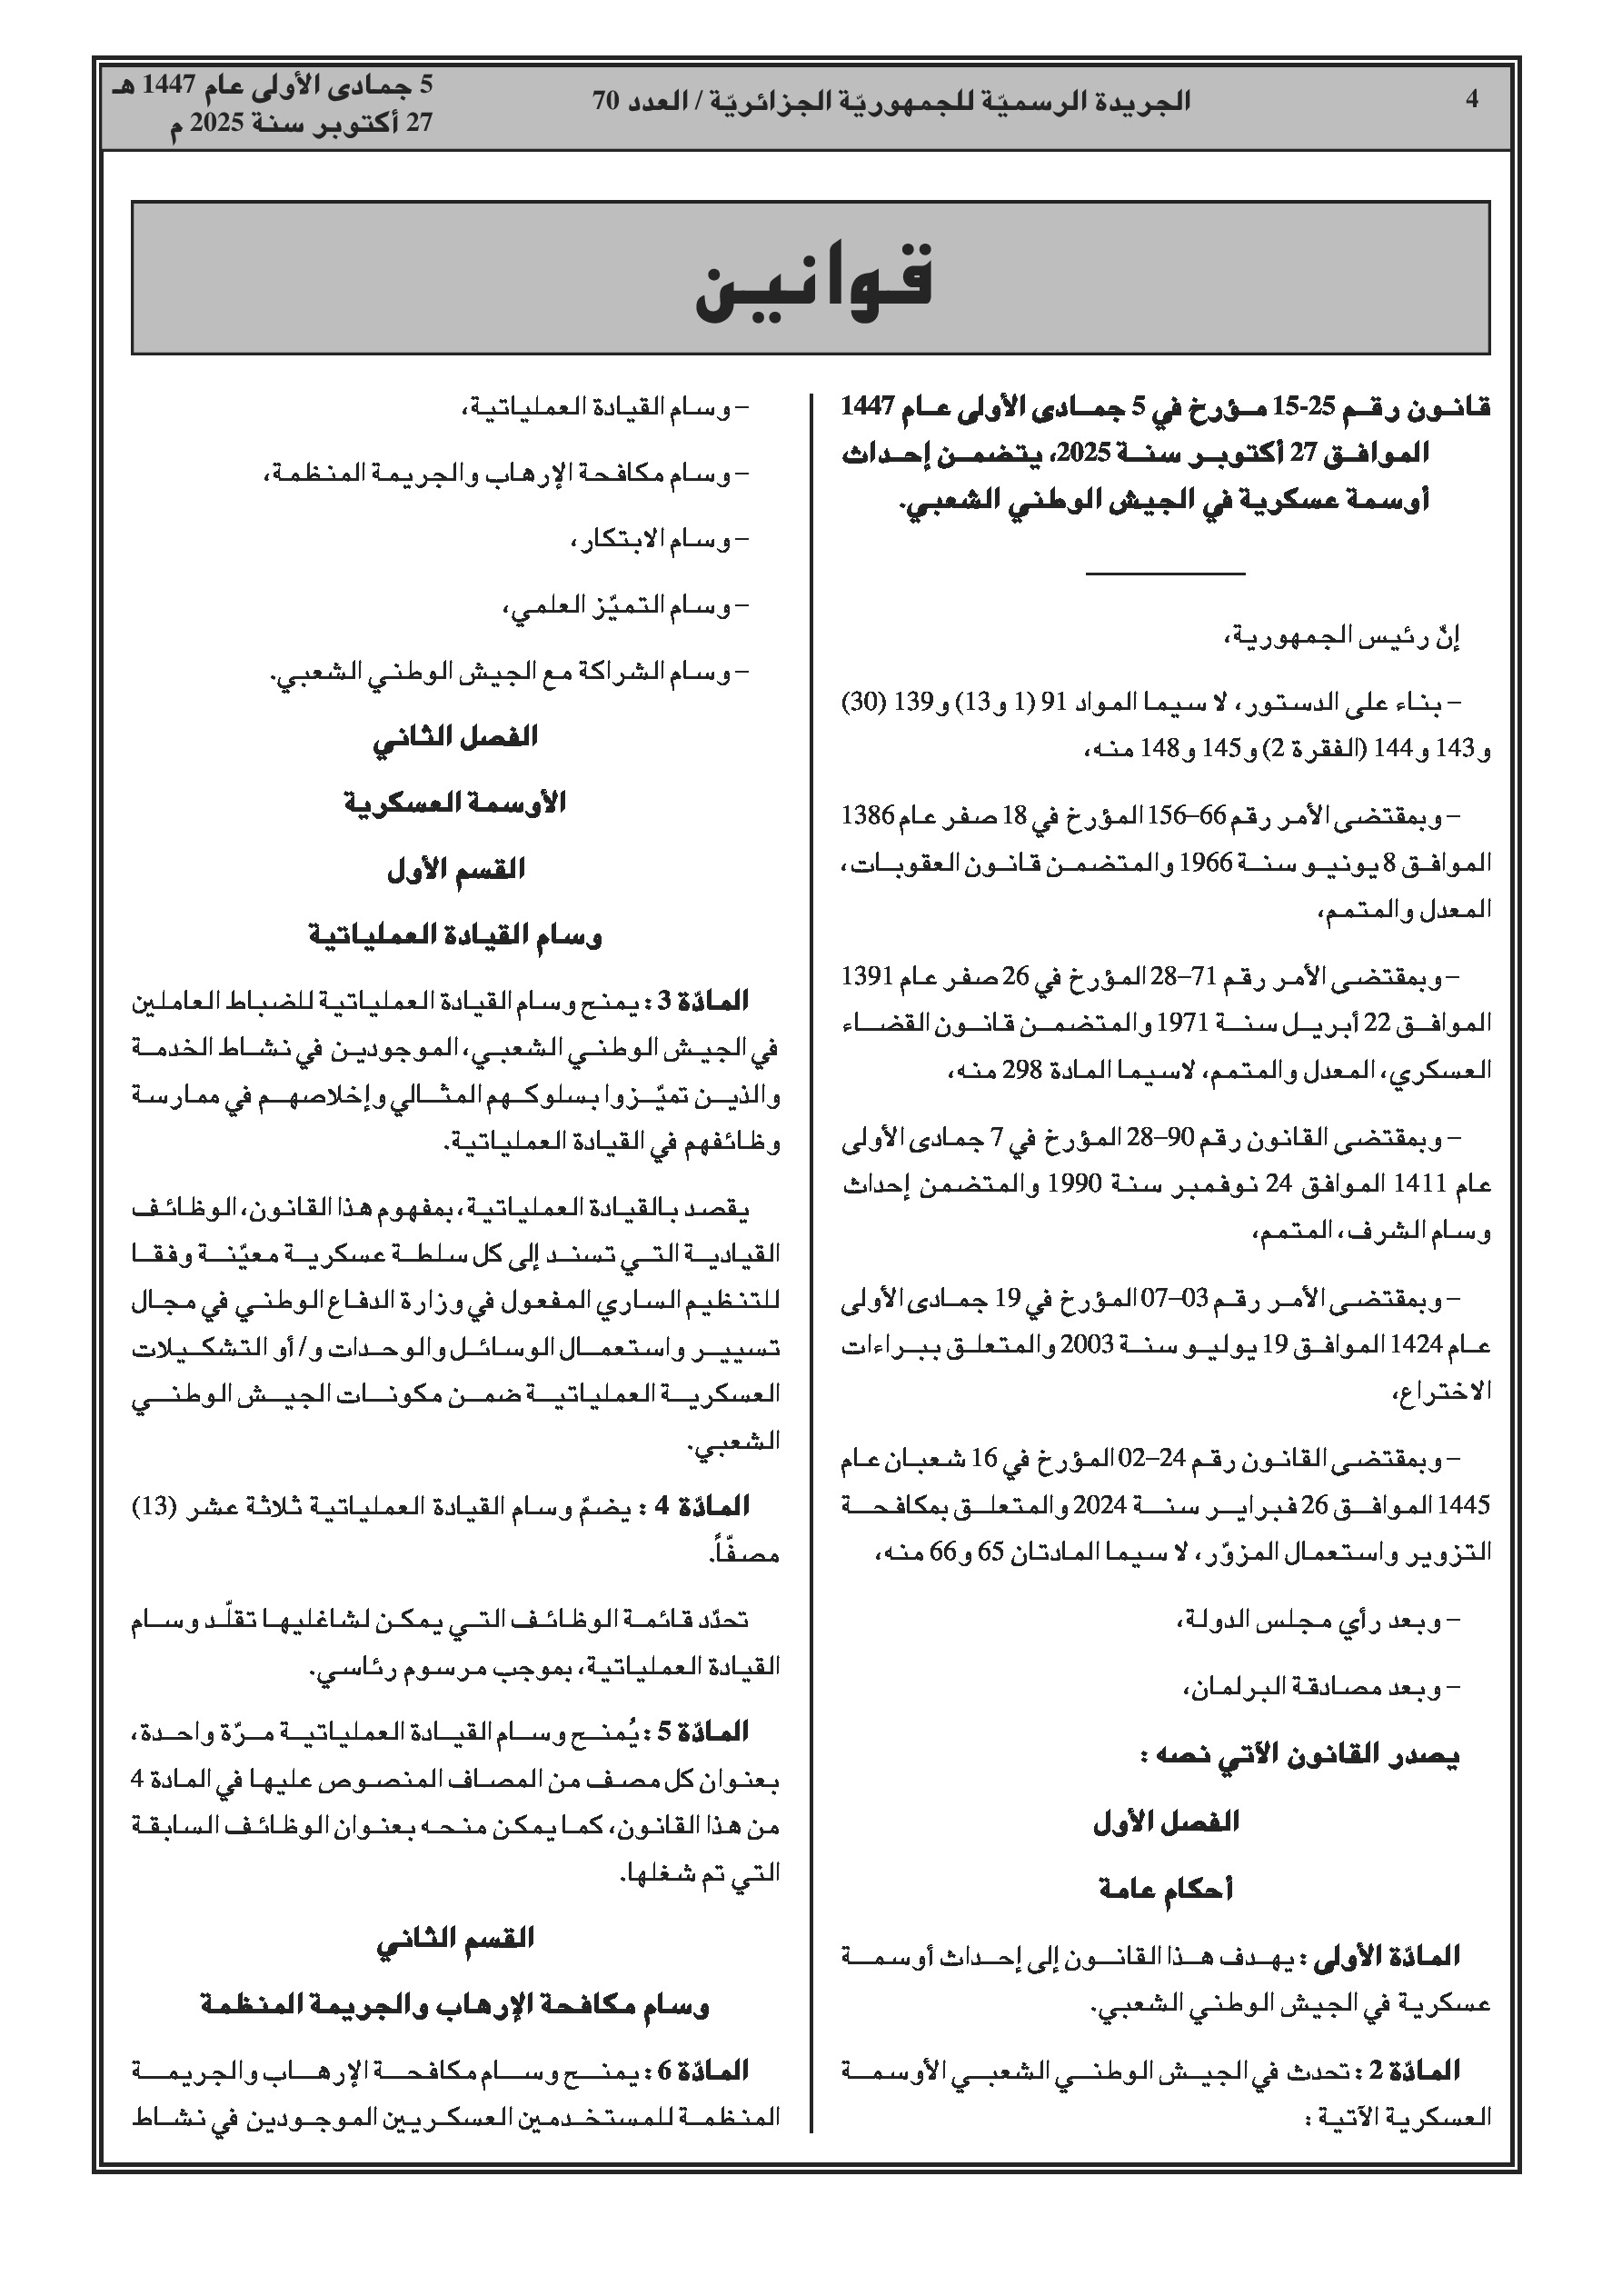 4
الجريدة الرسميّة للجمهوريّة الجزائريّة / العدد 70
5 جمادى الأولى عام 1447 هـ
27 أكتوبر سنة 2025 م
قوانين
قانون رقم 25-15 مؤرخ في 5 جمادى الأولى عام 1447
الموافق 27 أكتوبر سنة 2025، يتضمن إحداث
أوسمة عسكرية في الجيش الوطني الشعبي.
إنّ رئيس الجمهورية،
– بناء على الدستور، لا سيما المواد 91 (1 و13) و139 (30)
و143 و144 (الفقرة 2) و145 و148 منه،
– وبمقتضى الأمر رقم 66–156 المؤرخ في 18 صفر عام 1386
الموافق 8 يونيو سنة 1966 والمتضمن قانون العقوبات،
المعدل والمتمم،
– وبمقتضى الأمر رقم 71–28 المؤرخ في 26 صفر عام 1391
الموافق 22 أبريل سنة 1971 والمتضمن قانون القضاء
العسكري، المعدل والمتمم، لاسيما المادة 298 منه،
– وبمقتضى القانون رقم 90–28 المؤرخ في 7 جمادى الأولى
عام 1411 الموافق 24 نوفمبر سنة 1990 والمتضمن إحداث
وسام الشرف، المتمم،
– وبمقتضى الأمر رقم 03–07 المؤرخ في 19 جمادى الأولى
عام 1424 الموافق 19 يوليو سنة 2003 والمتعلق ببراءات
الاختراع،
– وبمقتضى القانون رقم 24–02 المؤرخ في 16 شعبان عام
1445 الموافق 26 فبراير سنة 2024 والمتعلق بمكافحة
التزوير واستعمال المزوّر، لا سيما المادتان 65 و66 منه،
– وبعد رأي مجلس الدولة،
– وبعد مصادقة البرلمان،
يصدر القانون الآتي نصه :
الفصل الأول
أحكام عامة
المادّة الأولى : يهدف هذا القانون إلى إحداث أوسمة
عسكرية في الجيش الوطني الشعبي.
المادّة 2 : تحدث في الجيش الوطني الشعبي الأوسمة
العسكرية الآتية :
– وسام القيادة العملياتية،
– وسام مكافحة الإرهاب والجريمة المنظمة،
– وسام الابتكار،
– وسام التميّز العلمي،
– وسام الشراكة مع الجيش الوطني الشعبي.
الفصل الثاني
الأوسمة العسكرية
القسم الأول
وسام القيادة العملياتية
المادّة 3 : يمنح وسام القيادة العملياتية للضباط العاملين
في الجيش الوطني الشعبي، الموجودين في نشاط الخدمة
والذين تميّزوا بسلوكهم المثالي وإخلاصهم في ممارسة
وظائفهم في القيادة العملياتية.
يقصد بالقيادة العملياتية، بمفهوم هذا القانون، الوظائف
القيادية التي تسند إلى كل سلطة عسكرية معيّنة وفقا
للتنظيم الساري المفعول في وزارة الدفاع الوطني في مجال
تسيير واستعمال الوسائل والوحدات و/ أو التشكيلات
العسكرية العملياتية ضمن مكونات الجيش الوطني
الشعبي.
المادّة 4 : يضمّ وسام القيادة العملياتية ثلاثة عشر (13)
مصفّاً.
تحدّد قائمة الوظائف التي يمكن لشاغليها تقلّد وسام
القيادة العملياتية، بموجب مرسوم رئاسي.
المادّة 5 : يُمنح وسام القيادة العملياتية مرّة واحدة،
بعنوان كل مصف من المصاف المنصوص عليها في المادة 4
من هذا القانون، كما يمكن منحه بعنوان الوظائف السابقة
التي تم شغلها.
القسم الثاني
وسام مكافحة الإرهاب والجريمة المنظمة
المادّة 6 : يمنح وسام مكافحة الإرهاب والجريمة
المنظمة للمستخدمين العسكريين الموجودين في نشاط